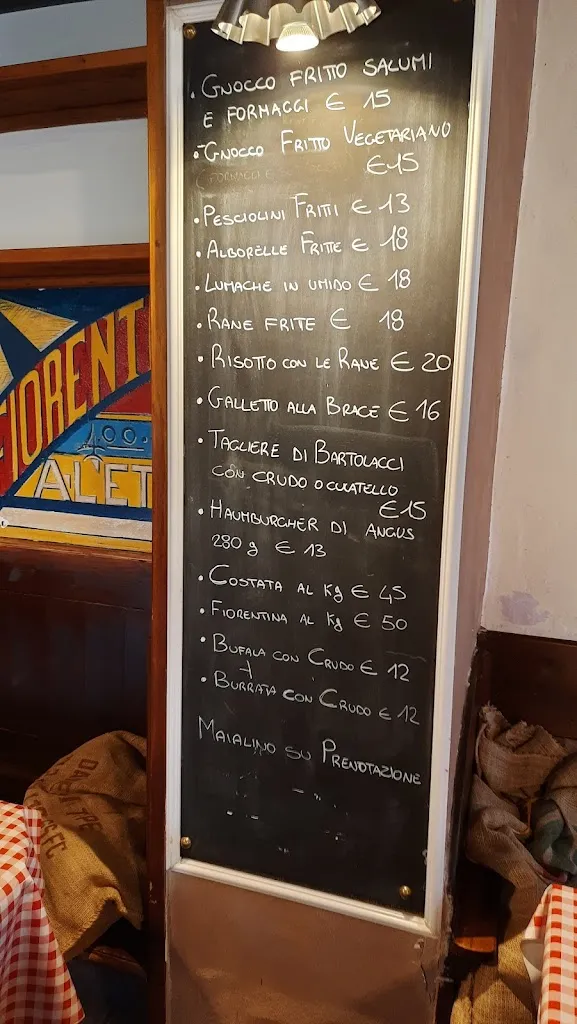 . Gnocco fritto salumi
e formaggi € 15
. Gnocco Fritto Vegetariano
€15
. Pesciolini Fritti € 13
. Alborelle Fritte € 18
. Lumache in umido € 18
. Rane frite € 18
. Risotto con le Rane € 20
. Galletto alla Brace € 16
. Tagliere di Bartolacci
con crudo o culatello
€15
. Haumburgher di angus
280 g € 13
. Costata al Kg € 45
. Fiorentina al Kg € 50
. Bufala con Crudo € 12
. Burrata con Crudo € 12
Maialino su Prenotazione
FIORENT
AL'ET